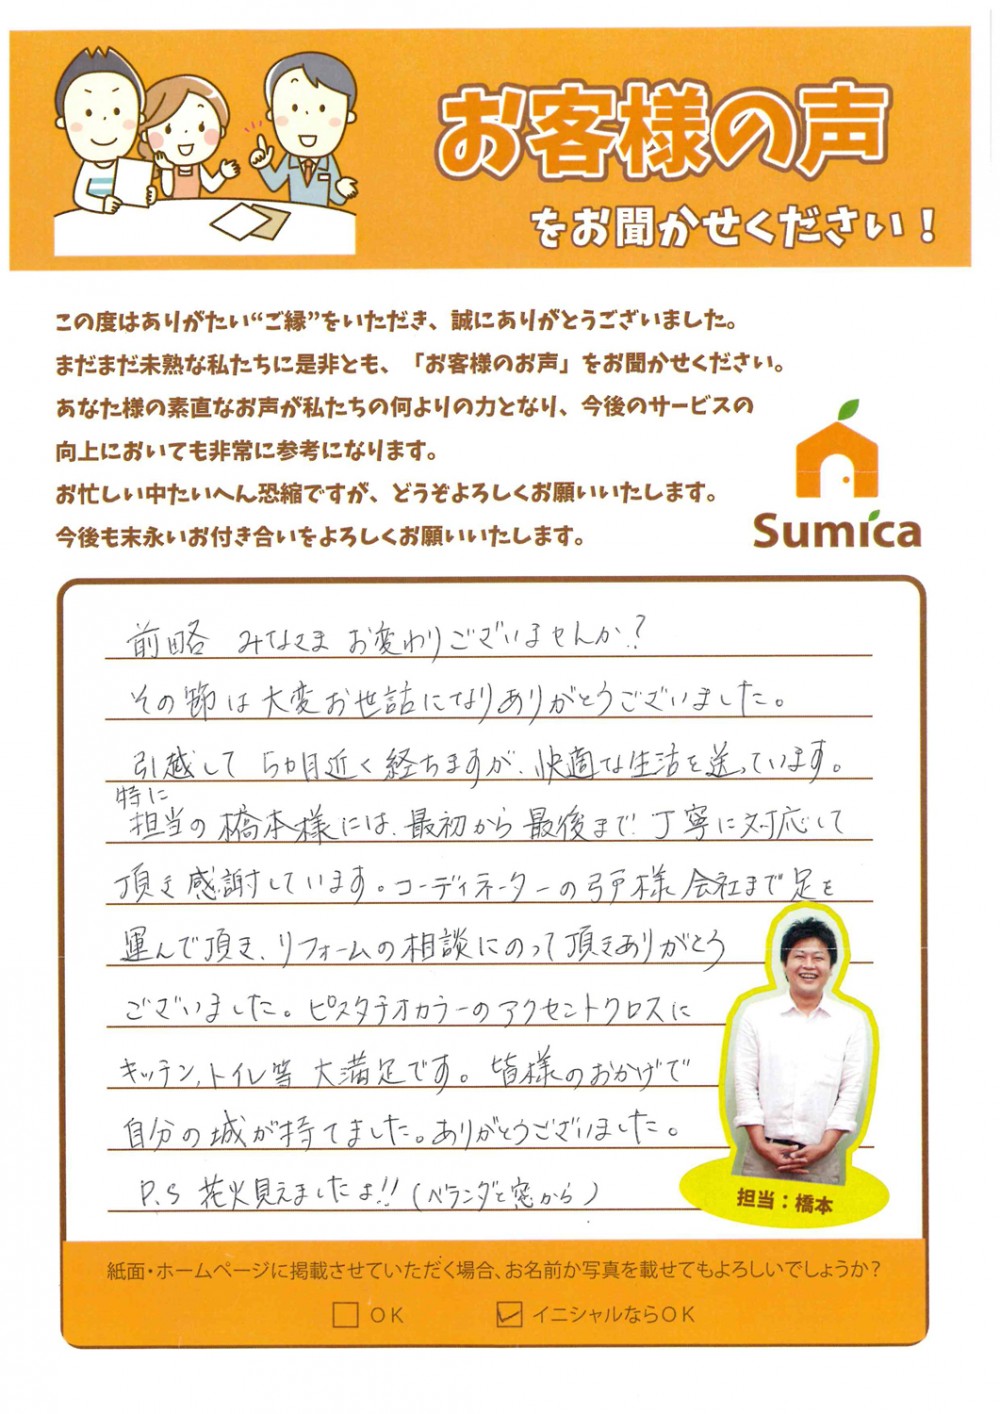 お客様の声
をお聞かせください！
この度はありがたい“ご縁”をいただき、誠にありがとうございました。
まだまだ未熟な私たちに是非とも、「お客様のお声」をお聞かせください。
あなた様の素直なお声が私たちの何よりの力となり、今後のサービスの
向上においても非常に参考になります。
お忙しい中たいへん恐縮ですが、どうぞよろしくお願いいたします。
今後も末永いお付き合いをよろしくお願いいたします。
Sumica
前略 みなさま お変わりございませんか？
その節は大変お世話になりありがとうございました。
引越して 5カ月近く経ちますが、快適な生活を送っています。
特に
担当の橋本様には、最初から最後まで丁寧に対応して
頂き感謝しています。コーディネーターの弓戸様 会社まで足を
運んで頂き、リフォームの相談にのって頂きありがとう
ございました。ピスタチオカラーのアクセントクロスに
キッチン、トイレ等 大満足です。皆様のおかげで
自分の城が持てました。ありがとうございました。
P.S 花火見えましたよ!!（ベランダと窓から）
担当：橋本
紙面・ホームページに掲載させていただく場合、お名前か写真を載せてもよろしいでしょうか？
OK
イニシャルならOK